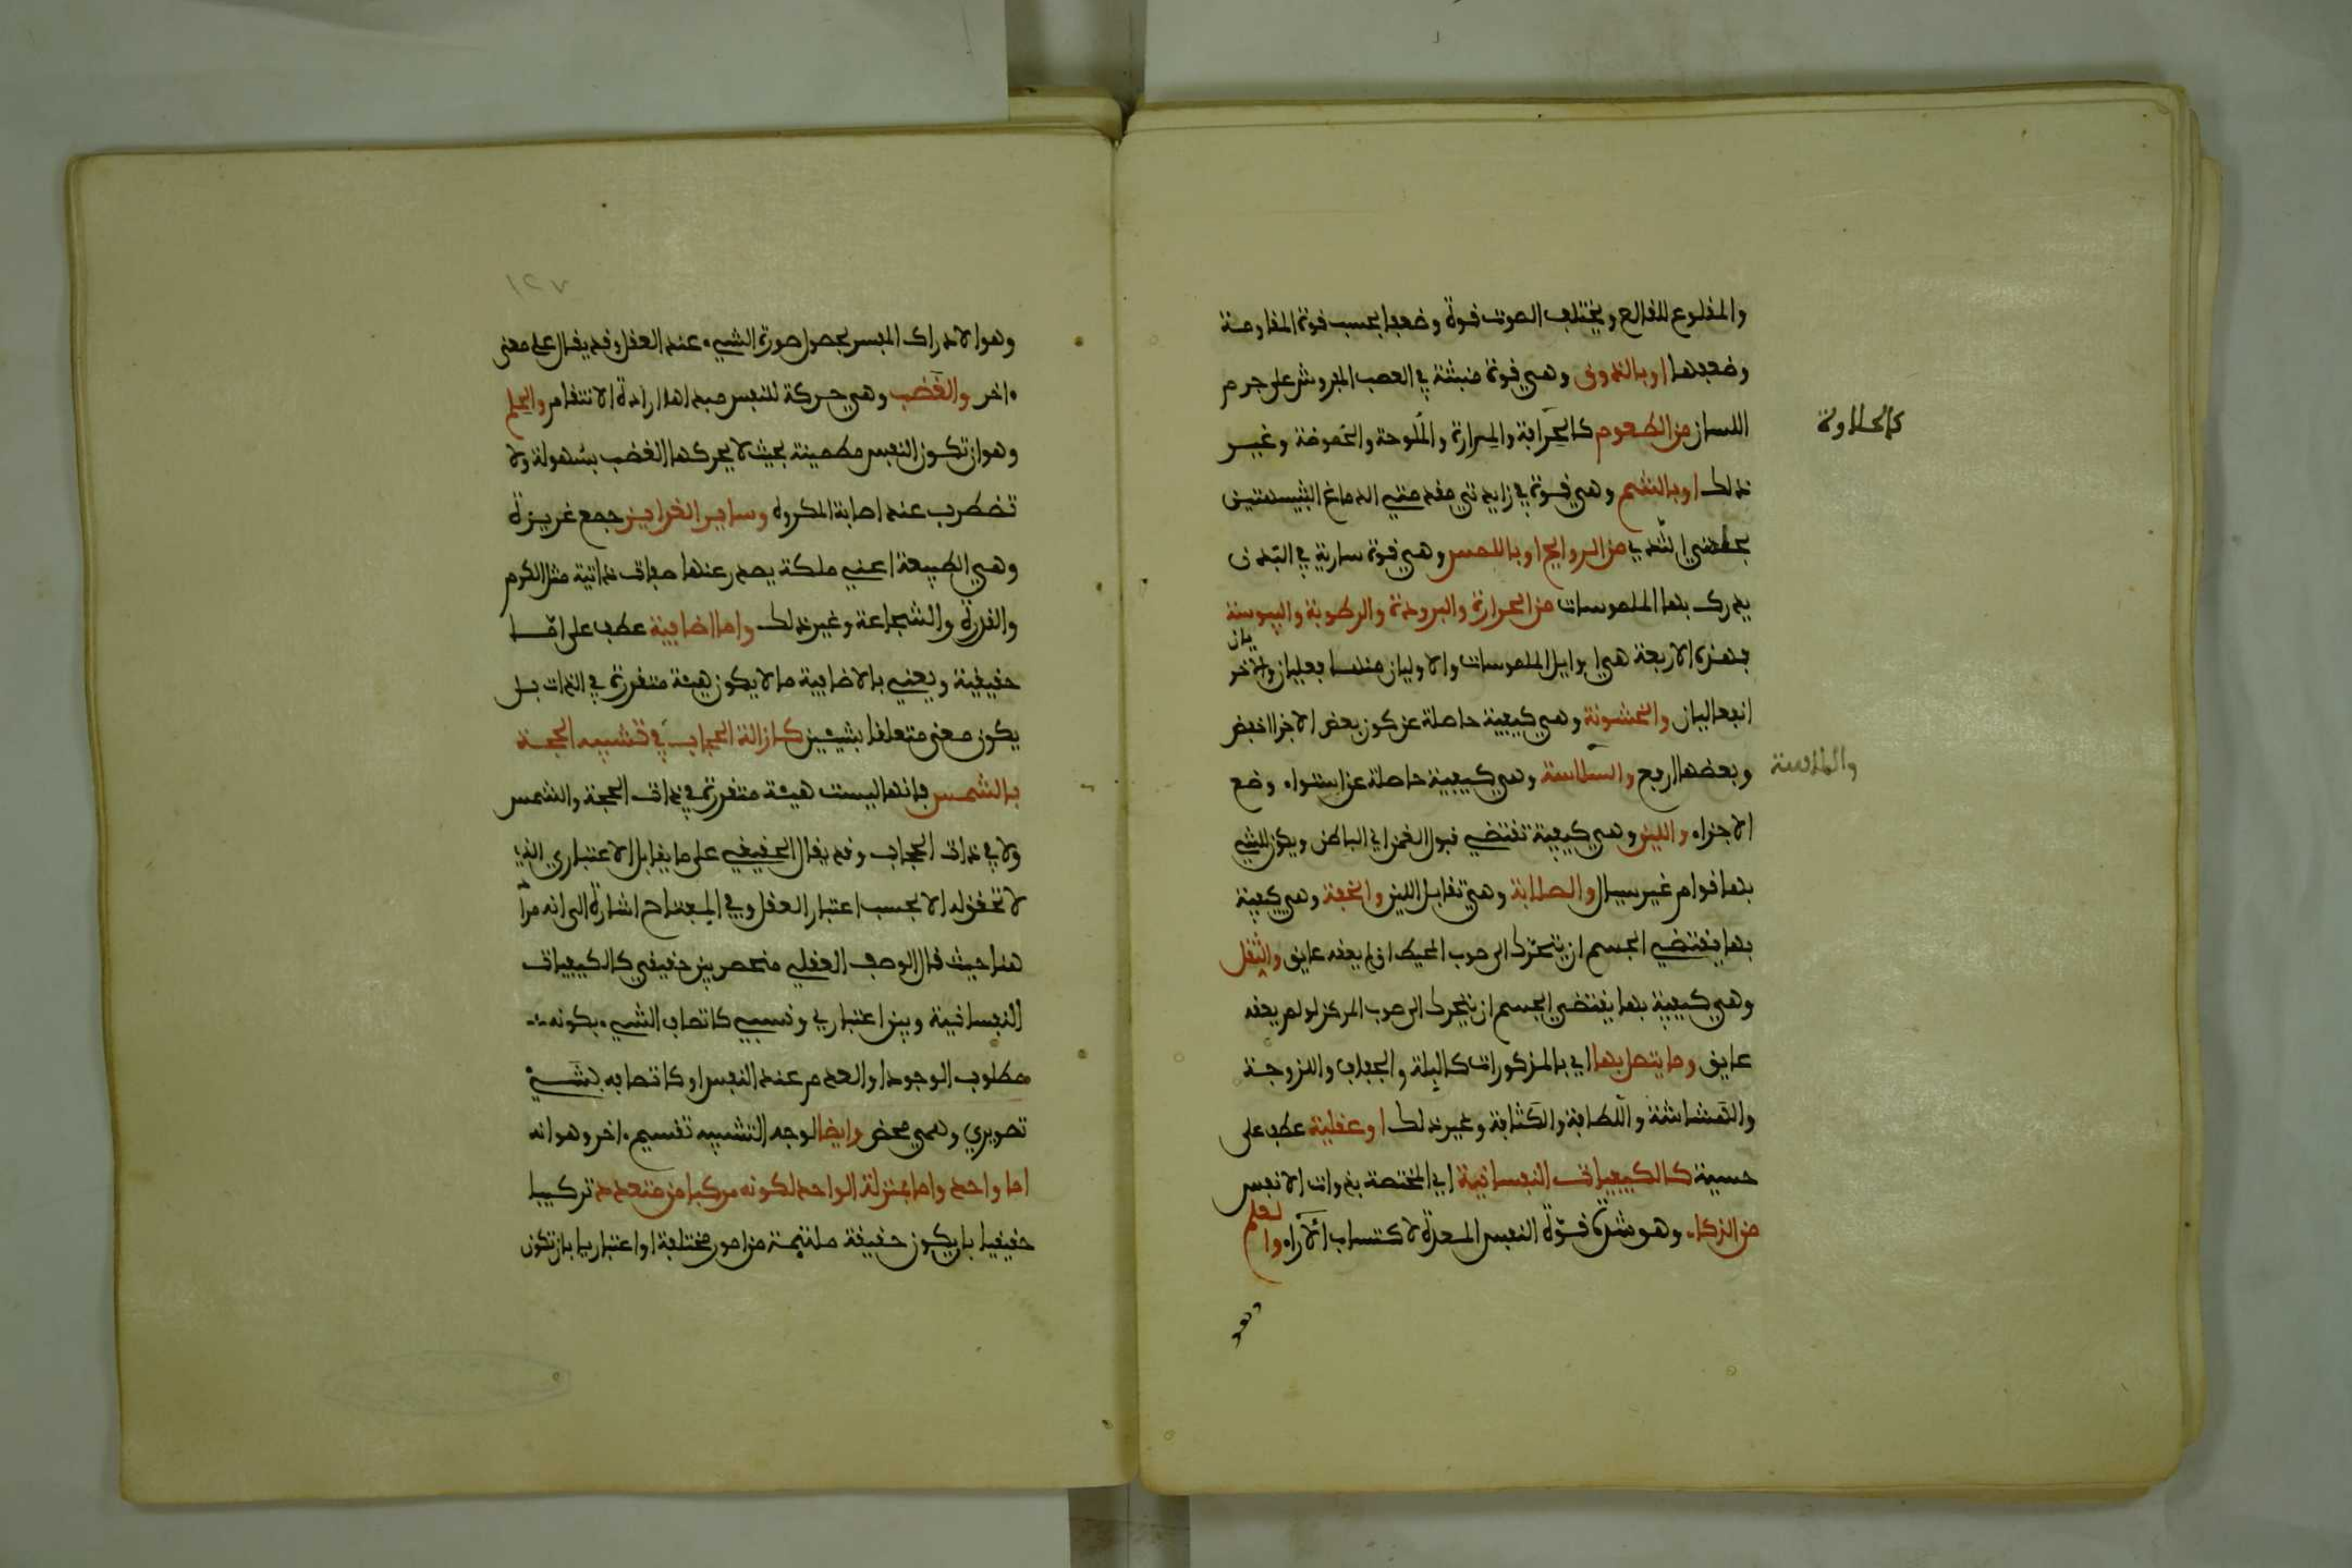 والمقلوع للقالع ويختلف الصوت قوة وضعفا بحسب قوة المقاومة
وضعفها او بالذوق وهي قوة منبثة في العصب المفروش على جرم
اللسان من الطعوم كالحرافة والمرارة والملوحة والحموضة وغير
كالحلاوة
ذلك او بالشم وهي قوة في زايدتي مقدمتي الدماغ الشبيهتين
بحلمتي الثدي من الروايح او باللمس وهي قوة سارية في البدن
يدرك بها الملموسات من الحرارة والبرودة والرطوبة واليبوسة
فهذه الاربعة هي اوايل الملموسات والاوليان منها فعليان والاخر
يان
انفعاليان والخشونة وهي كيفية حاصلة عن كون بعض الاجزا اخفض
وبعضها ارفع والملاسة وهي كيفية حاصلة عن استواء وضع
والملاسة
الاجزاء واللين وهي كيفية تقتضي قبول الغمز الى الباطن ويكون للشيء
بها قوام غير سيال والصلابة وهي تقابل اللين والخفة وهي كيفية
بها يقتضي الجسم ان يتحرك الى صوب المحيط ان لم يعقه عايق والثقل
وهي كيفية بها يقتضي الجسم ان يتحرك الى صوب المركز لو لم يعقه
عايق وما يتصل بها اي بالمذكورات كالبلة والجفاف واللزوجة
والهشاشة واللطافة والكثافة وغير ذلك او عقلية عطف على
حسية كالكيفيات النفسانية اي المختصة بذوات الانفس
من الذكاء وهو شدة قوة النفس المعدة لاكتساب الآراء والعلم
وهو

١٢٧
وهو الادراك المفسر بحصول صورة الشيء عند العقل وقد يقال على معنى
ءاخر والغضب وهي حركة للنفس مبدأها ارادة الانتقام والحلم
وهو ان تكون النفس مطمينة بحيث لا يحركها الغضب بسهولة ولا
تضطرب عند اصابة المكروه وساير الغرايز جمع غريزة
وهي الطبيعة اعني ملكة يصدر عنها صفات ذاتية مثل الكرم
والقدرة والشجاعة وغير ذلك واما اضافية عطف على اما
حقيقية ويعني بالاضافية ما لا يكون هيئة متقررة في الذات بل
يكون معنى متعلقا بشيئين كازالة الحجاب في تشبيه الحجة
بالشمس فانها ليست هيئة متقررة في ذات الحجة والشمس
ولا في ذات الحجاب وقد يقال الحقيقي على ما يقابل الاعتباري الذي
لا تحقق له الا بحسب اعتبار العقل وفي المفتاح اشارة الى انه مراد
هنا حيث قال الوصف العقلي منحصر بين حقيقي كالكيفيات
النفسانية وبين اعتباري ونسبي كاتصاف الشيء بكونه
مطلوب الوجود او العدم عند النفس او كاتصافه بشيء
تصويري وهمي محض وايضا لوجه التشبيه تقسيم ءاخر وهو انه
اما واحد واما بمنزلة الواحد لكونه مركبا من متعدد تركيبا
حقيقيا بان يكون حقيقة ملتيمة من امور مختلفة او اعتباريا بان تكون